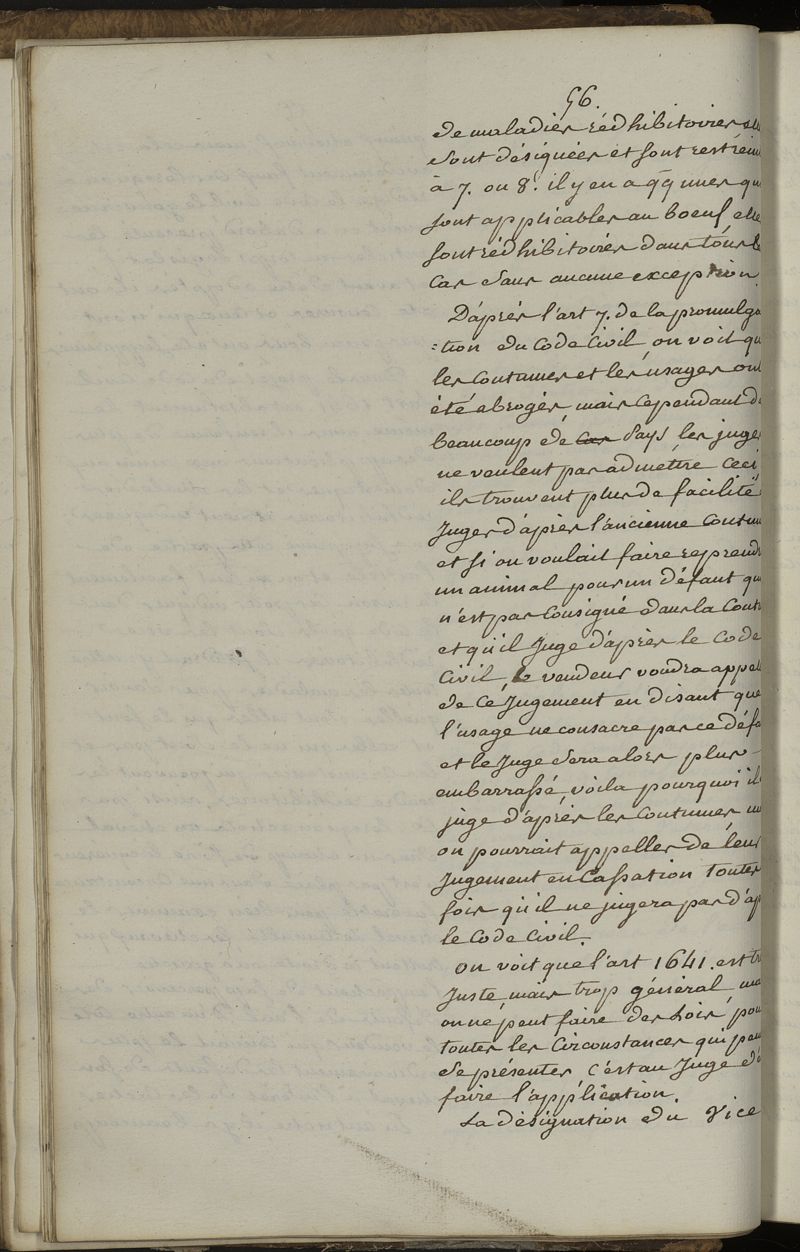 56.
de maladies rédhibitoires
sont désignées et sont restrein
à 7. ou 8. il y en a qq unes qu
sont applicables au boeuf elle
sont rédhibitoires dans tous le
cas sans aucune exception.
D'après l'art 7. de la promulga
=tion du Code Civil on voit qu
les coutumes et les usages ont
été abrogés mais cependant d
beaucoup de cas pays les juges
ne veulent pas admettre ceci
ils trouvent plus de facilité
Juger d'après l'ancienne coutum
et si on voulait faire reprendr
un animal pour un défaut qu
n'est pas consigné dans la Cout
et qu'il Juge d'après le Code
Civil, le vendeur voudra appel
de ce Jugement en disant que
l'usage ne consacre pas ce défa
et le Juge sera alors plus
embarrassé, voila pourquoi il
juge d'après les coutumes m
on pourrait appeller de leur
Jugement en Cassation toutes
fois qu'il ne jugera pas d'ap
le Code Civil.
On voit que l'art 1641. est tr
Juste mais trop général, ma
on ne peut faire des Lois pou
toutes les Circonstances qui peu
se présenter c'est au Juge d'
faire l'application.
La désignation du Vice